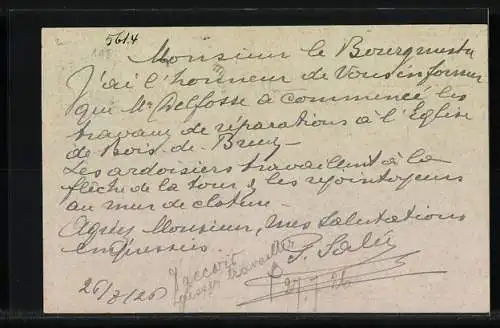 5614
Monsieur le Bourgmestre
J'ai l'honneur de vous informer
que Mr Delfosse a commencé les
travaux de réparations à l'Eglise
de Bois-de-Breux.
Les ardoisiers travaillent à la
flèche de la tour & les rejointoyeurs
au mur de clôture.
Agréez Monsieur, mes salutations
empressées.